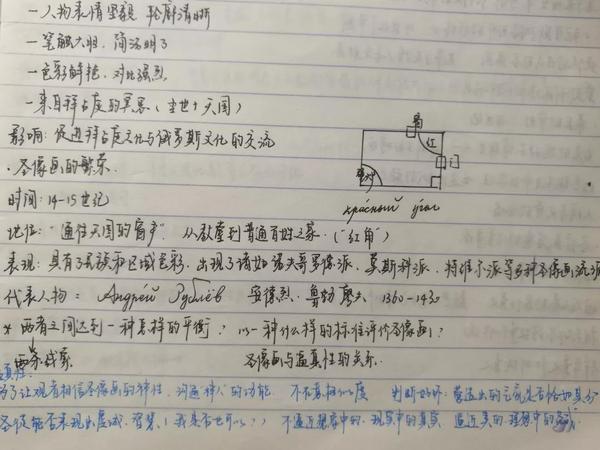 －人物表情坚毅 轮廓清晰
－笔触大胆，简洁明了
－色彩鲜艳，对比强烈
－来自拜占庭的冥思（尘世+天国）
影响：促进拜占庭文化与俄罗斯文化的交流
·圣像画的繁荣
窗
红
门
时间：14-15世纪
красный угол
地位：“通往天国的窗户”从教堂到普通百姓之家.（“红角”）
表现：具有了民族和区域色彩，出现了诸如诺夫哥罗德派，莫斯科派，特维尔派等多种圣像画流派
代表人物： Андрей Рублёв 安德烈·鲁勃廖夫 1360-1430
* 两者之间达到一种怎样的平衡？以一种什么样的标准评价圣像画？
圣像画与逼真性的关系.
为了让观者相信圣像画的神性，沟通神人的功能 不在真相似度 判断好坏：营造出的 是否恰如其分
圣徒能否表现出虔诚，智慧，（我是否也可以？） 不逼近想象中的，现实中的真实 逼近美的 理想中的